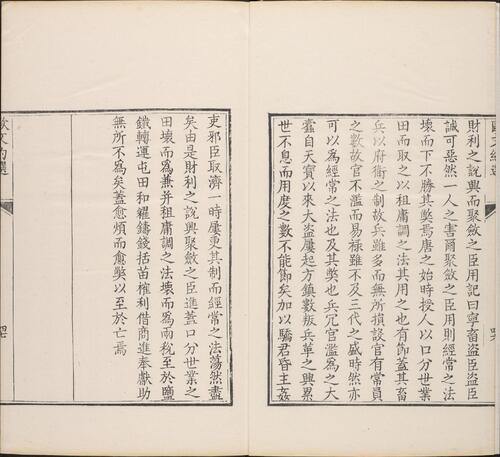 財利之說興而聚斂之臣用記曰寧畜盜臣盜臣
誠可惡然一人之害爾聚斂之臣用則經常之法
壞而下不勝其獘焉唐之始時授人以口分世業
田而取之以租庸調之法其用之也有節蓋其畜
兵以府衛之制故兵雖多而無所損設官有常員
之數故官不濫而易祿雖不及三代之盛時然亦
可以爲經常之法也及其獘也兵冗官濫爲之大
蠹自天寶以來大盜屢起方鎮數叛兵革之興累
世不息而用度之數不能節矣加以驕君昏主姦
吏邪臣取濟一時屢更其制而經常之法蕩然盡
矣由是財利之說興聚斂之臣進蓋口分世業之
田壞而爲兼并租庸調之法壞而爲兩稅至於鹽
鐵轉運屯田和糴鑄錢括苗榷利借商進奉獻助
無所不爲矣蓋愈煩而愈獘以至於亡焉